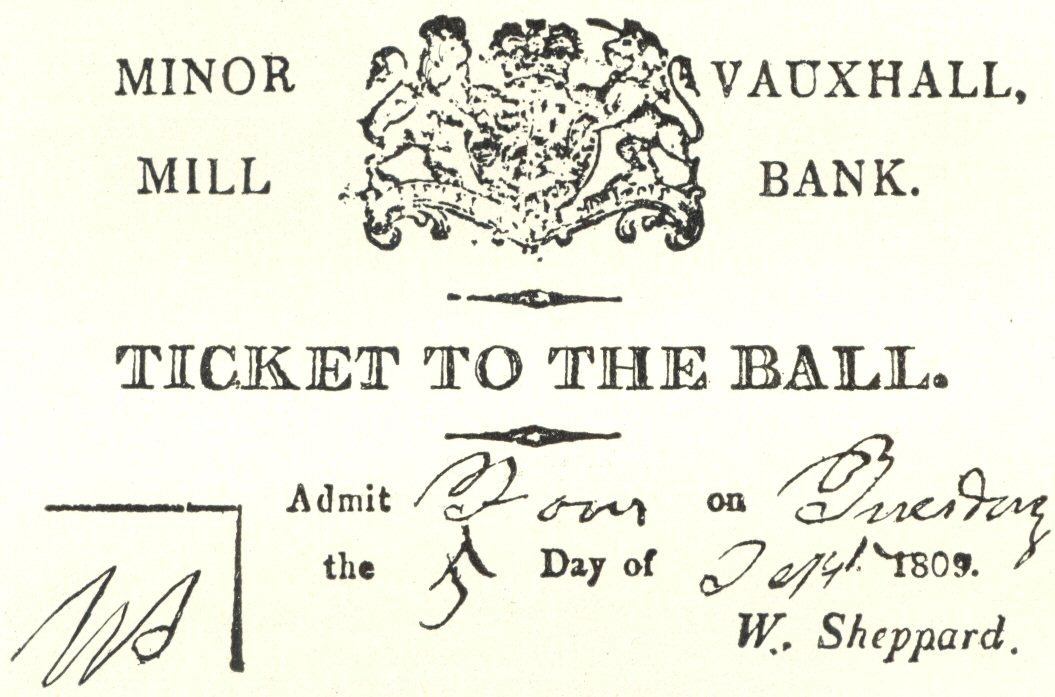 MINOR VAUXHALL,
MILL BANK.
TICKET TO THE BALL.
Admit Four on Tuesday
the 5 Day of Sept. 1809.
W. Sheppard.
WS